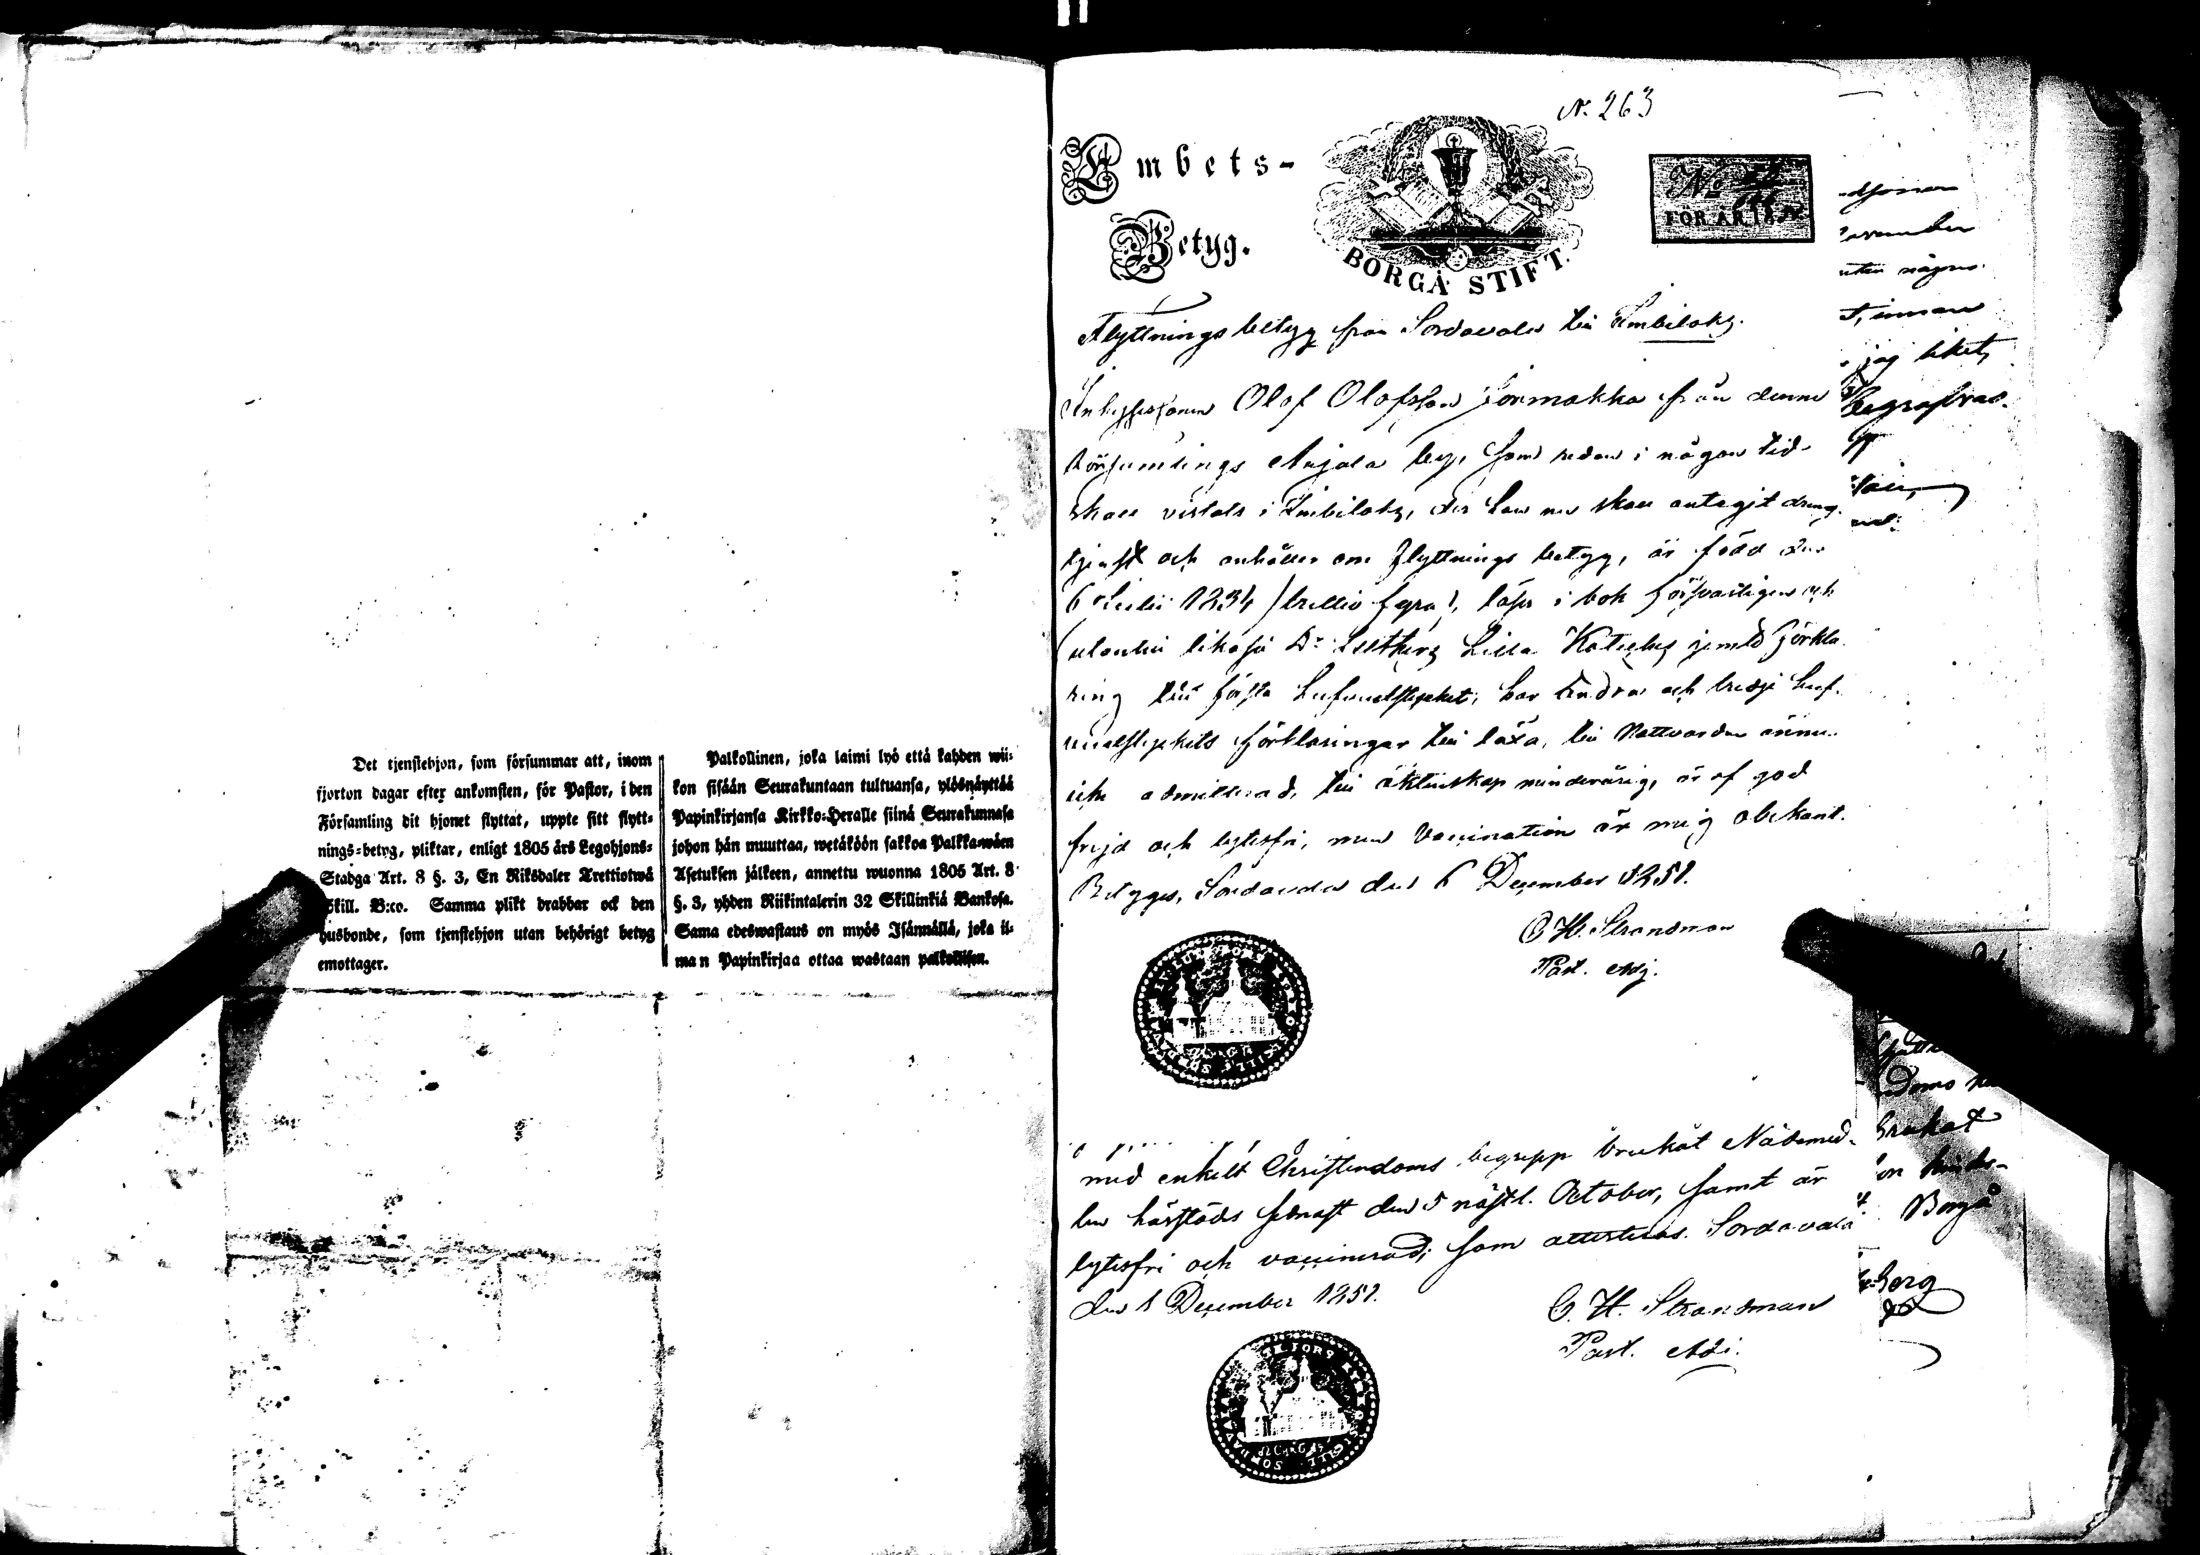 Det tjenstehjon, som försummar att, inom
fjorton dagar efter ankomsten, för Pastor, i den
Församling dit hjonet flyttat, uppte sitt flytt=
nings=betyg, pliktar, enligt 1805 års Legohjons=
Stadga Art. 8 §. 3, En Riksdaler Trettiotwå
Skill. B:co. Samma plikt drabbar ock den
husbonde, som tjenstehjon utan behörigt betyg
emottager.
Palkollinen, joka laimi lyö että kahden wii=
kon sisään Seurakuntaan tultuansa, ylösnäyttää
Papinkirjansa Kirkko=Heralle siinä Seurakunnasa
johon hän muuttaa, wetäköön sakkoa Palkka=wäen
Asetuksen jälkeen, annettu wuonna 1805 Art. 8
§. 3, yhden Riikintalerin 32 Skillinkiä Bankosa.
Sama edeswastaus on myös Isännällä, joka il=
man Papinkirjaa ottaa wastaan palkollisen.
N. 263
Embets-
Betyg.
BORGÅ STIFT.
No
FÖR ÅR 18
Flyttningsbetyg från Sordavala till Imbilaks.
Olof Olofsson Jormakka från denna
församlings Anjala by, som redan i någon tid
skall vistats i Imbilaks, der han nu skall antagit dreng
tjenst och anhåller om flyttnings betyg, är född den
6 Julii 1834 (trettio fyra), läser i bok försvarligen och
utantill likaså Dr Luthers Lilla Kateches jemte förkla
ring till första hufvudstycket, har andra och tredje huf-
vudstyckets förklaringar till läxa, till Nattvarden ännu
icke admitterad, till äktenskap minderårig, är af god
frejd och lytesfri, men vaccination är mig obekant.
Betygas, Sordavala den 6 December 1851.
C. H. Strandman
Past. Adj.
med enkelt Christendoms begrepp brukat Nådemed-
len härstädes sednast den 5 nästl. October, samt är
lytesfri och vaccinerad; som attesteras. Sordavala
den 1 December 1851.
C. H. Strandman
Past. Adj.
november
utan någon
innan
jag
brukat
Borgå
berg